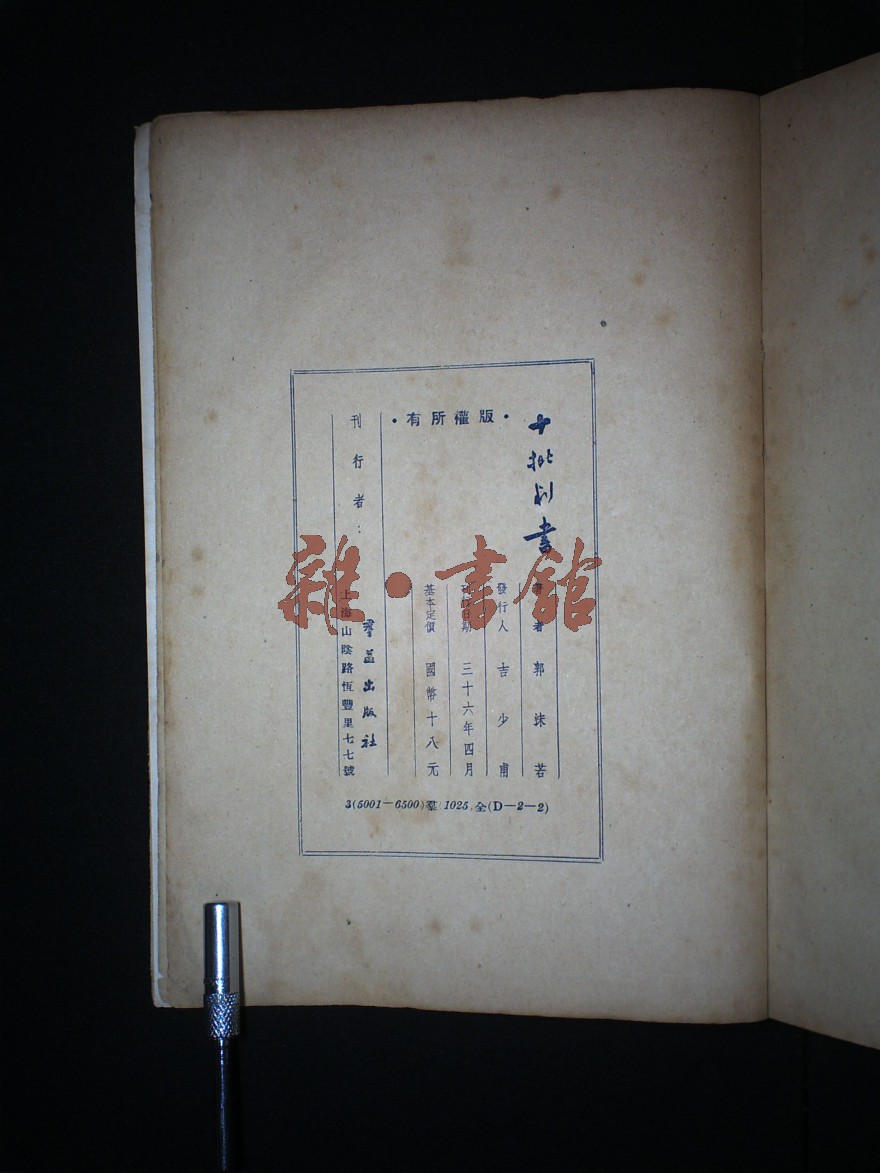 十批判書
・版權所有・
著者 郭沫若
發行人 吉少甫
刊行日期 三十六年四月
基本定價 國幣十八元
刊行者：
羣益出版社
上海山陰路恆豐里七七號
3(5001—6500)羣(1025,全(D—2—2)
雜・書館